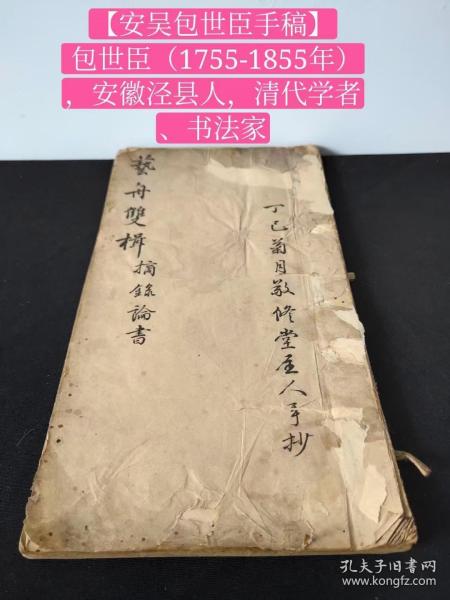 【安吴包世臣手稿】
包世臣（1755-1855年）
，安徽泾县人，清代学者
、书法家
丁巳菊月敬修堂主人手抄
藝舟雙楫摘錄論書
孔夫子旧书网
www.kongfz.com